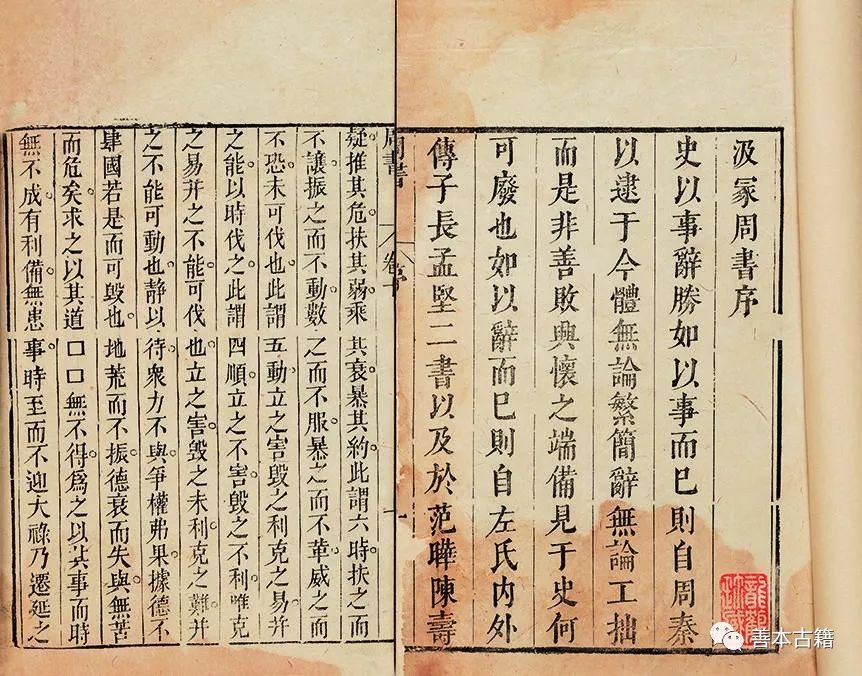 汲冢周書序
史以事辭勝如以事而已則自周秦
以逮于今體無論繁簡辭無論工拙
而是非善敗興懷之端備見于史何
可廢也如以辭而已則自左氏内外
傳子長孟堅二書以及於范曄陳壽
周書 卷十 一
疑推其危扶其弱乘其衰暴其約此謂六時扶之而
不讓振之而不動數之而不服暴之而不革威之而
不恐未可伐也此謂五動立之害毀之利克之易并
之能以時伐之此謂四順立之不害毀之不利唯克
之易并之不能可伐也立之害毀之未利克之難并
之不能可動也静以待衆力不與爭權弗果據德不
肆國若是而可毀也地荒而不振德衰而失與無苦
而危矣求之以其道口口無不得爲之以其事而時
無不成有利備無患事時至而不迎大祿乃遷延之
善本古籍